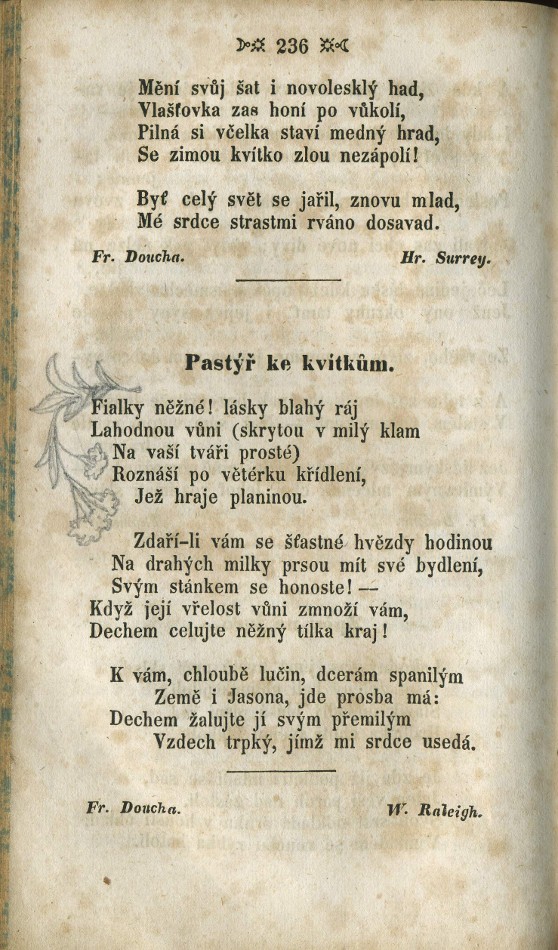 236
Mění svůj šat i novolesklý had,
Vlašťovka zas honí po vůkolí,
Pilná si včelka staví medný hrad,
Se zimou kvítko zlou nezápolí!
Byť celý svět se jařil, znovu mlad,
Mé srdce strastmi rváno dosavad.
Fr. Doucha. Hr. Surrey.
Pastýř ke kvítkům.
Fialky něžné! lásky blahý ráj
Lahodnou vůni (skrytou v milý klam
Na vaší tváři prosté)
Roznáší po větérku křídlení,
Jež hraje planinou.
Zdaří-li vám se šťastné hvězdy hodinou
Na drahých milky prsou mít své bydlení,
Svým stánkem se honoste! —
Když její vřelost vůni zmnoží vám,
Dechem celujte něžný tílka kraj!
K vám, chloubě lučin, dcerám spanilým
Země i Jasona, jde prosba má:
Dechem žalujte jí svým přemilým
Vzdech trpký, jímž mi srdce usedá.
Fr. Doucha. W. Raleigh.